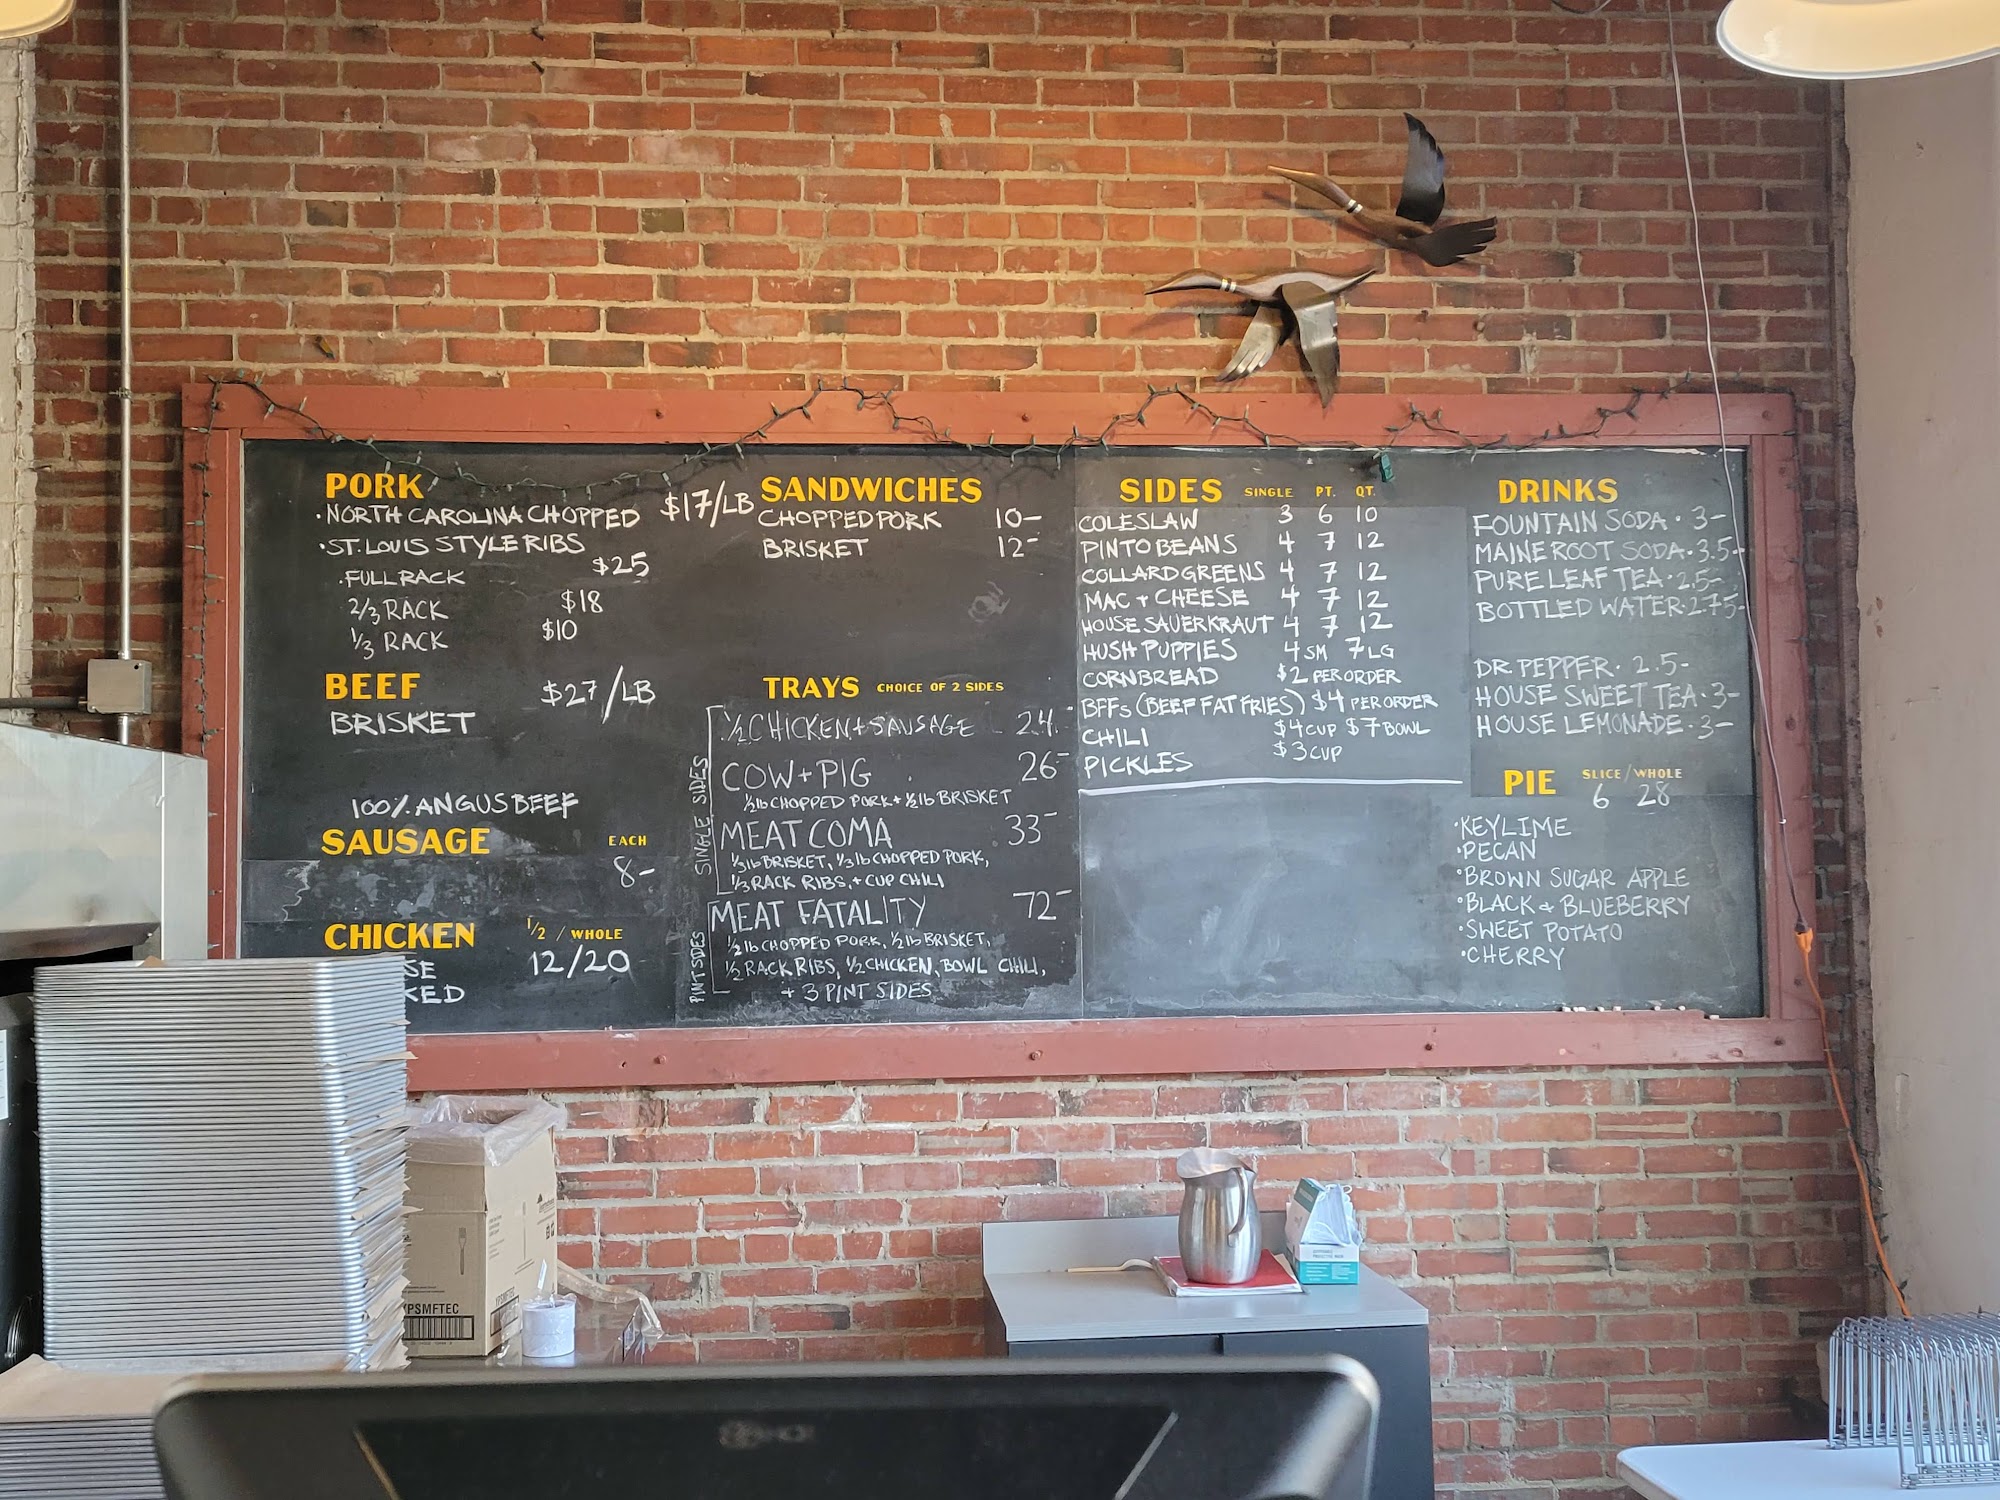 PORK
·NORTH CAROLINA CHOPPED $17/LB
·ST. LOUIS STYLE RIBS
·FULL RACK $25
2/3 RACK $18
1/3 RACK $10
BEEF $27/LB
BRISKET
100% ANGUS BEEF
SAUSAGE EACH
8-
CHICKEN 1/2 / WHOLE
SE 12/20
KED
SANDWICHES
CHOPPED PORK 10-
BRISKET 12-
TRAYS CHOICE OF 2 SIDES
SINGLE SIDES
1/2 CHICKEN + SAUSAGE 24-
COW + PIG 26-
1/2 lb CHOPPED PORK + 1/2 lb BRISKET
MEAT COMA 33-
1/3 lb BRISKET, 1/3 lb CHOPPED PORK,
1/3 RACK RIBS, + CUP CHILI
PINT SIDES
MEAT FATALITY 72-
1/2 lb CHOPPED PORK, 1/2 lb BRISKET,
1/2 RACK RIBS, 1/2 CHICKEN, BOWL CHILI,
+ 3 PINT SIDES
SIDES SINGLE PT. QT.
COLESLAW 3 6 10
PINTO BEANS 4 7 12
COLLARD GREENS 4 7 12
MAC + CHEESE 4 7 12
HOUSE SAUERKRAUT 4 7 12
HUSH PUPPIES 4 SM 7 LG
CORNBREAD $2 PER ORDER
BFFs (BEEF FAT FRIES) $4 PER ORDER
CHILI $4 CUP $7 BOWL
PICKLES $3 CUP
DRINKS
FOUNTAIN SODA · 3-
MAINE ROOT SODA · 3.5-
PURE LEAF TEA · 2.5-
BOTTLED WATER · 2.75-
DR. PEPPER · 2.5-
HOUSE SWEET TEA · 3-
HOUSE LEMONADE · 3-
PIE SLICE / WHOLE
6 28
·KEYLIME
·PECAN
·BROWN SUGAR APPLE
·BLACK + BLUEBERRY
·SWEET POTATO
·CHERRY
YPSMFTEC